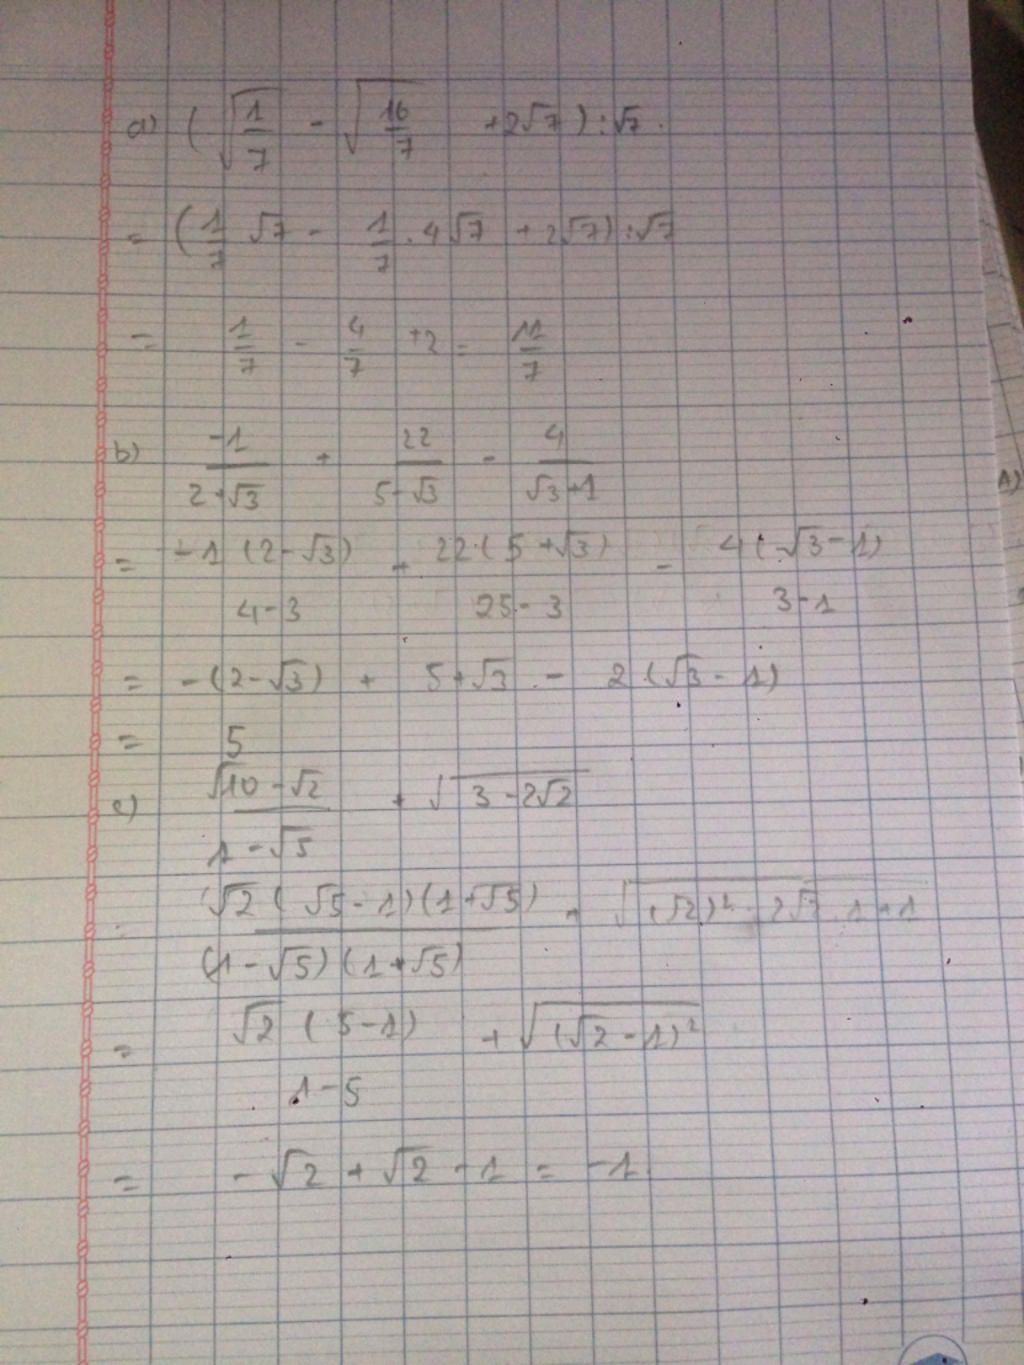 a) (√(1/7) - √(16/7) + 2√7) : √7.
= (1/7 √7 - 1/7 . 4√7 + 2√7) : √7
= 1/7 - 4/7 + 2 = 11/7
b) -1/(2+√3) + 22/(5-√3) - 4/(√3+1)
= -1(2-√3)/(4-3) + 22.(5+√3)/(25-3) - 4(√3-1)/(3-1)
= -(2-√3) + 5+√3 - 2(√3-1)
= 5
c) (√10-√2)/(1-√5) + √(3-2√2)
= √2(√5-1)(1+√5)/((1-√5)(1+√5)) + √((√2)² - 2√2.1+1)
= √2(5-1)/(1-5) + √((√2-1)²)
= -√2 + √2 - 1 = -1
A)